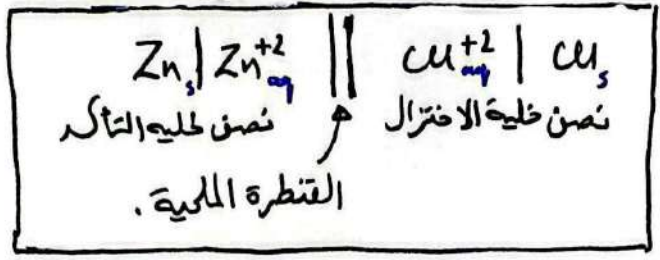 Zn_s | Zn^{+2}_{aq} || Cu^{+2}_{aq} | Cu_s
نصف خلية التأكسد نصف خلية الاختزال
القنطرة الملحية .